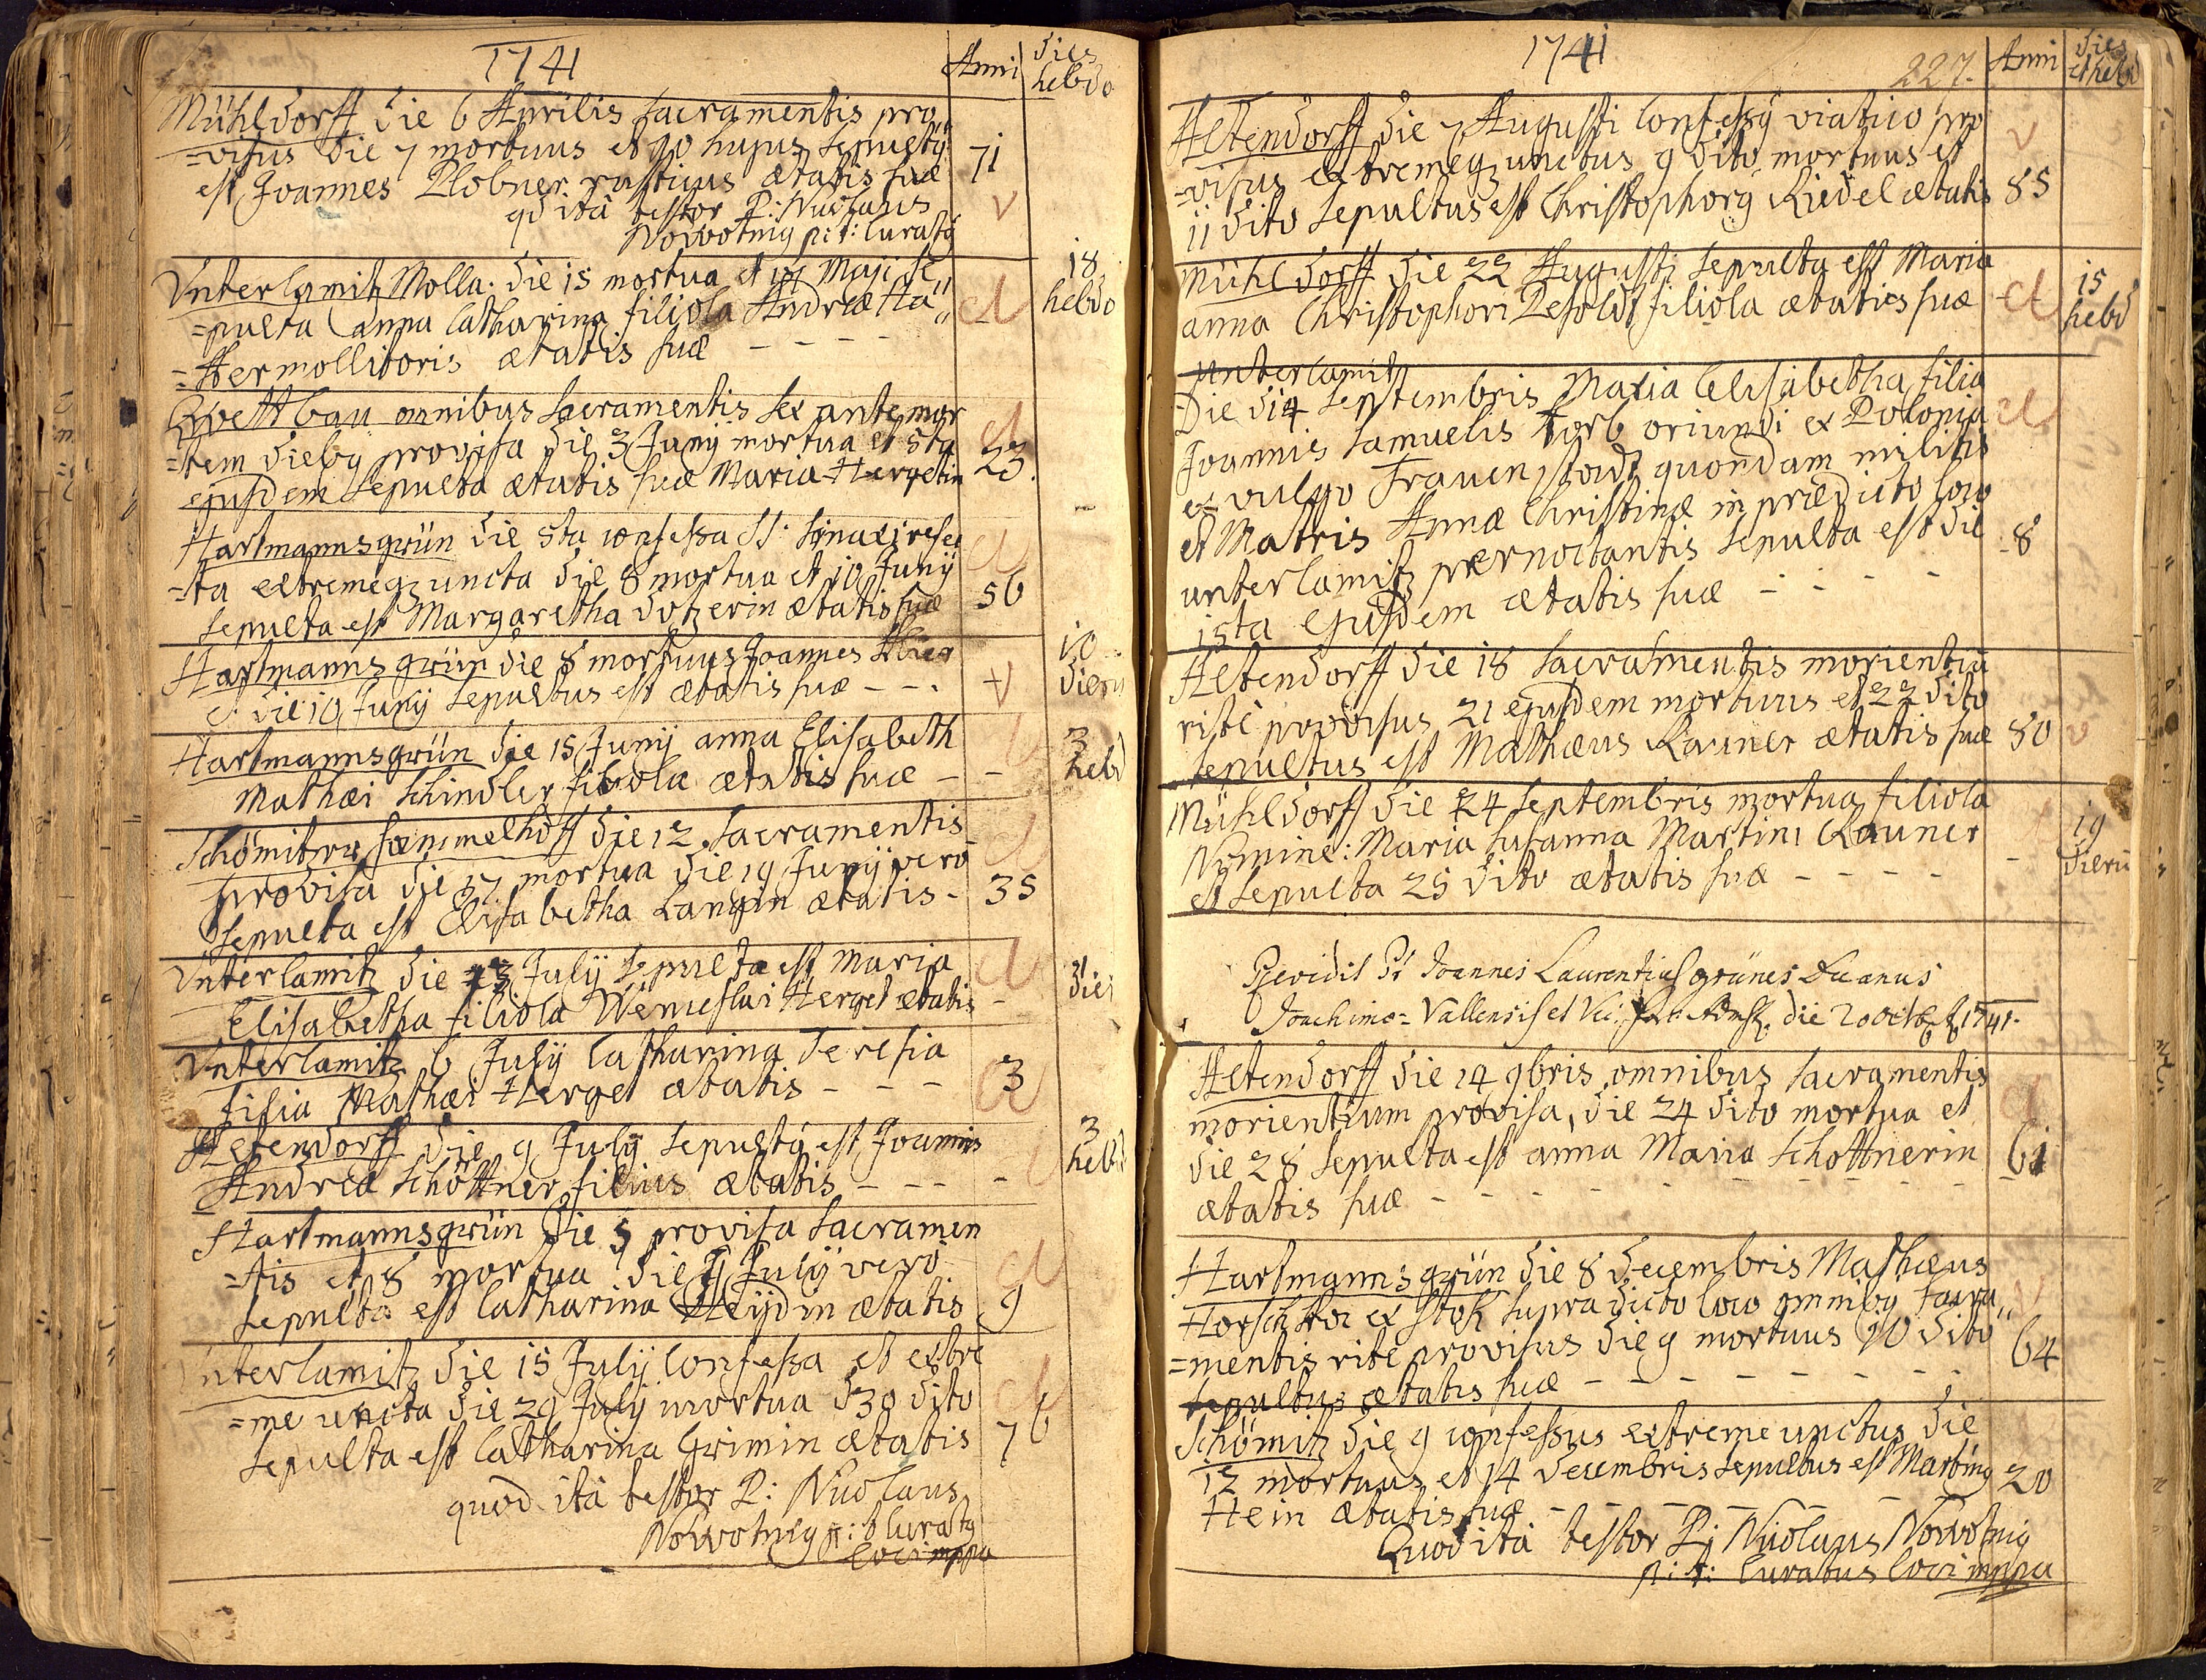 1741 Anni Dies hebdo
Mühldorff die 6 Aprilis Sacramentis pro„
=visus die 7 mortuus et 10 hujus Sepultq
est Joannes Plobner rusticus ætatis suæ 71
qd ità testor P: Nicolaus
Nowotnig p:t: Curatq
Unterlamitz Molla. die 15 mortua et 17 Maji se„ 18 hebdo
=pulta anna Catharina filiola Andreæ Ha„
=Hermollitoris ætatis suæ - - - -
omnibus Sacramentis sex ante mor
=tem diebq provisa die 3 Junij mortua et 5ta
ejusdem Sepulta ætatis suæ Maria Hergetin 23.
Hartmannsgrün die 5ta confessa SS: refec
=ta extremeq uncta die 8 mortua et 10 Junij
Sepulta est Margaretha ætatis suæ 56
Hartmannsgrün die 8 mortuus Joannes 10 dieru
die 10 Junij Sepultus est ætatis suæ - - .
Hartmannsgrün die 15 Junij anna Elisabeth 3 hebd
Mathæi Schindler filiola ætatis suæ - -
Schömitz die 12 Sacramentis
provisa die 17 mortua die 19 Junij vero
Sepulta est Elisabetha Langin ætatis - 35
Unterlamitz die 13 Julij Sepulta est Maria
Elisabetha filiola Wenceslai Herget ætatis - 3 dier
Unterlamitz 6 Julij Catharina Teresia
filia Mathæi Herget ætatis - - - 3
Altendorff die 9 Julij Sepultq est Joannes 3 hebd
Andreæ Schöttner filius ætatis - - - -
Hartmannsgrün die 5 provisa Sacramen
=tis et 8 mortua die 9 Julij verò
Sepulta est Catharina ætatis 9
Unterlamitz die 15 Julij Confessa et extre
=me uncta die 29 Julij mortua d 30 dito
Sepulta est Catharina Grimin ætatis 76
quod ità testor P: Nicolaus
Nowotnig p:t Curatq
loci mppa
1741 227. Anni Dies et hebd
Altendorff die 7 Augusti Confessq viatico pro
=visus extremeq unctus 9 dito mortuus et
11 dito Sepultus est Christophorq Riedel ætatis 85
Mühldorff die 22 Augusti Sepulta est Maria 15 hebd
anna Christophori Pesoldt filiola ætatis suæ -
Unterlamitz
Die 14 Septembris Maria Elisabetha filia
Joannis Samuelis Korb oriundi ex Polonia
ex vulgo Frauenstadt quondam militis
et Matris Annæ Christinæ in prædicto loco
unterlamitz pernoctantis Sepulta est die - 8
15ta Ejusdem ætatis suæ - - - -
Altendorff die 18 Sacramentis morientiū
ritè provisus 21 ejusdem mortuus et 22 dito
Sepultus est Mathæus Rauner ætatis suæ 50
Mühldorff die 24 Septembris mortua filiola 19 dierū
Nomine: Maria Susanna Martini Rauner
et Sepulta 25 dito ætatis suæ - - - -
Revidit Joannes Laurentius Grünes Decanus
Joachimo=Vallensis et die 20 octob 1741.
Altendorff die 14 9bris omnibus Sacramentis
morientium provisa, die 24 dito mortua et
die 28 Sepulta est anna Maria Schöttnerin 61
ætatis suæ - - - - - - - -
Hartmannsgrün die 8 Decembris Mathæus
ex supra dicto loco omnibq Sacra„
=mentis ritè provisus die 9 mortuus 10 dito 64
Sepultus ætatis suæ - - - - - - -
Schömitz die 9 confessus extreme unctus die
12 mortuus et 14 Decembris Sepultus est Martinq 20
Hein ætatis suæ - - - - - -
Quod ità testor P: Nicolaus Nowotnig
p:t: Curatus loci mppa